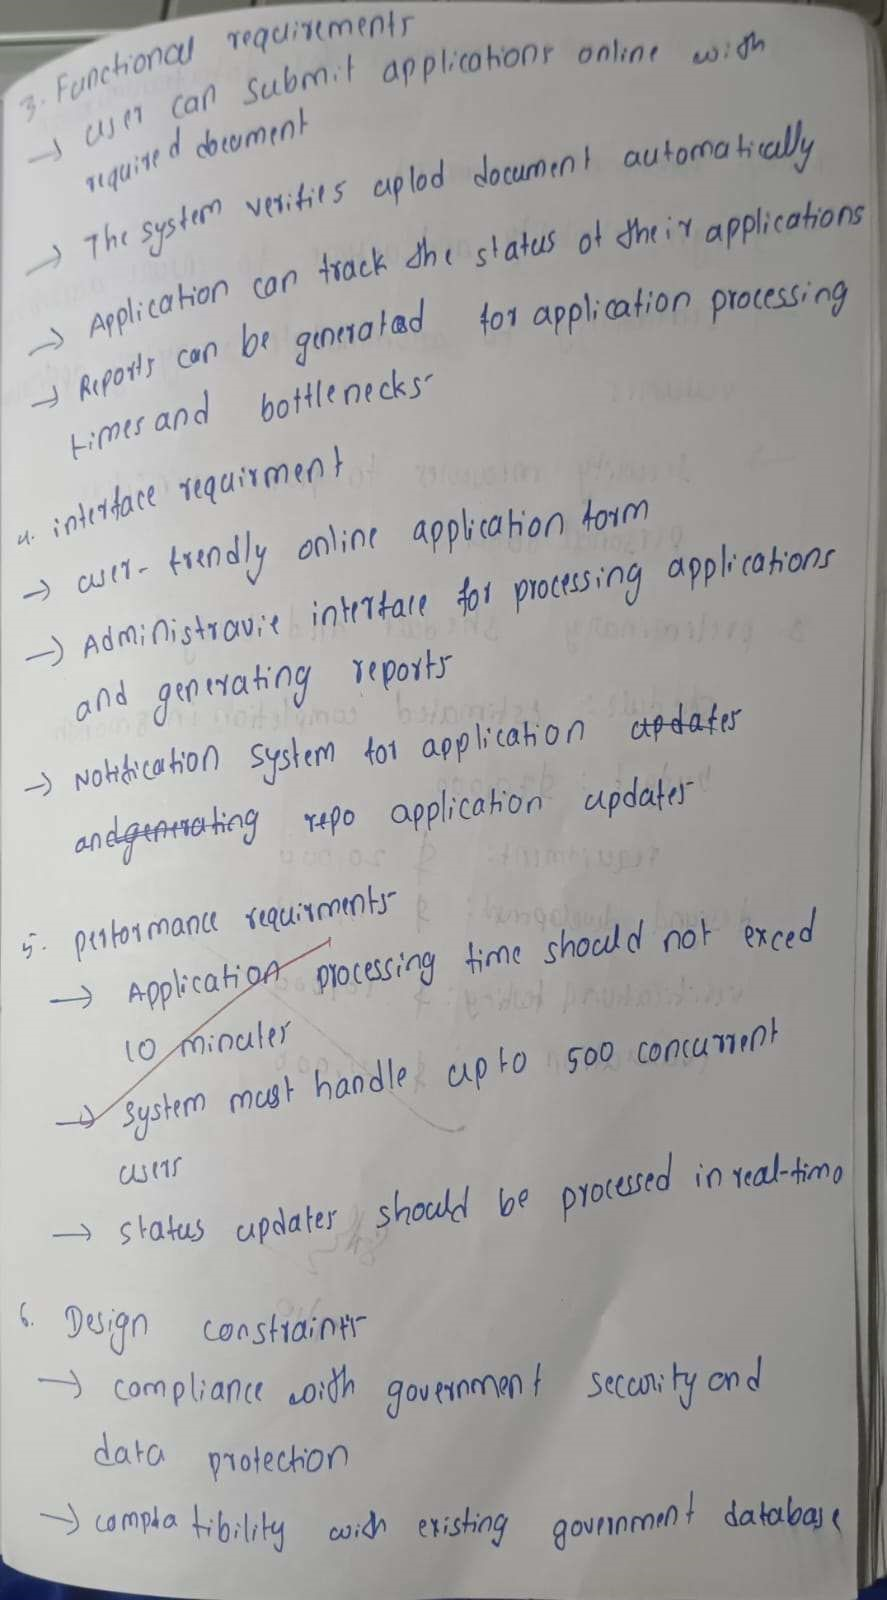 3. Functional requirements
→ User can submit applications online with
required document
→ The system verifies uplod document automatically
→ Application can track the status of their applications
→ Reports can be generatad for application processing
times and bottlenecks
4. interface requirment
→ user-frendly online application form
→ Administravie interface for processing applications
and generating reports
→ Notification system for application updates
and generating repo application updates
5. performance requirments
→ Application processing time should not exced
10 minutes
→ System must handle up to 500 concurrent
users
→ status updates should be processed in real-time
6. Design constraints
→ compliance with government security and
data protection
→ compatibility with existing government database